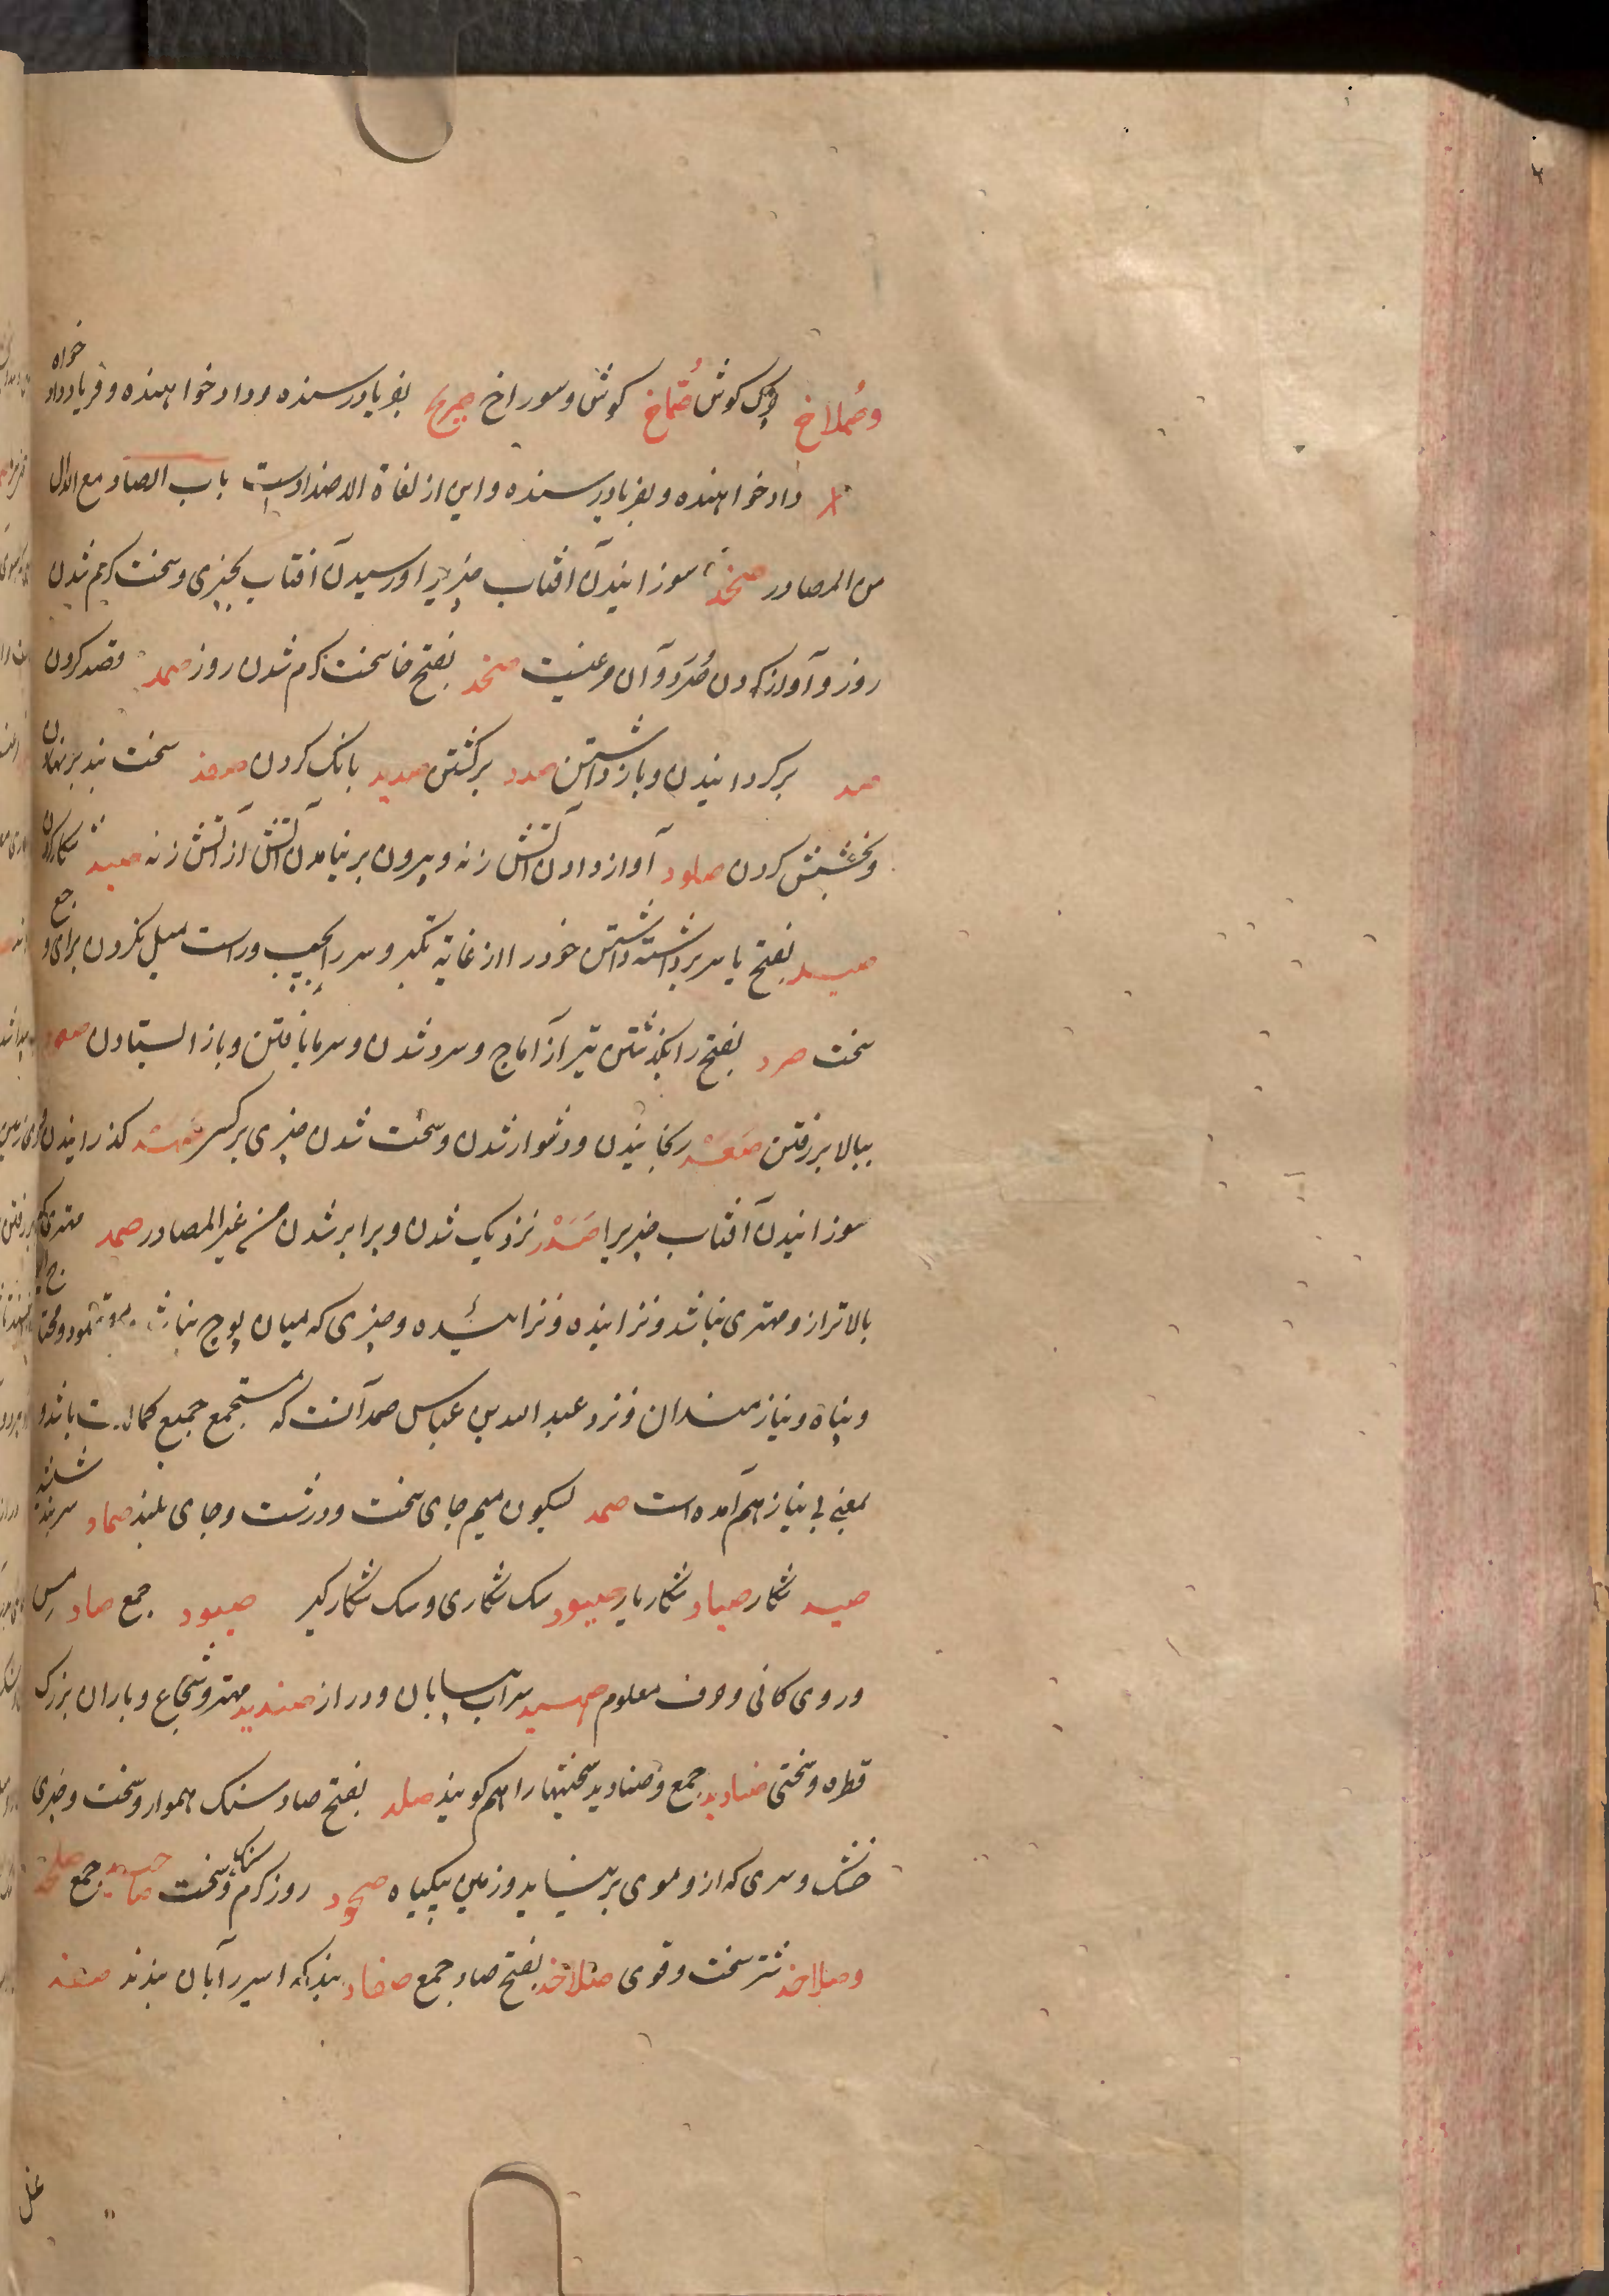 وصُملاخ چرک کوش صُماخ کوش و سوراخ صریخ بفریادرسنده و دادخواهنده و فریاد داد خواه
دادخواهنده و بفریادرسنده و این از لغاة الاضدادست باب الصاد مع الدال
من المصادر صخد سوزانیدن آفتاب چیزیرا و رسیدن آفتاب بچیزی و سخت کرم شدن
روز و آواز کردن صُرَد و آن مرغیست صخد بفتح خا سخت کرم شدن روز صمد قصد کردن
صد برکردانیدن و بازداشتن صدد برکشتن صدید بانک کردن صفد سخت بند برنهادن
و بخشش کردن صلود آواز دادن آتش زنه و بیرون برنیامدن آتش از آتش زنه صید شکار کردن
صید بفتح یا سر برداشته داشتن خود را از غایة تکبر و سر را بچپ و راست میل نکردن برای وجع
سخت صرد بفتح را بکذشتن تیر از آماج و سرد شدن و سرما یافتن و باز ایستادن صعود
ببالا بر رفتن صَعَد رنجانیدن و دشوار شدن و سخت شدن چیزی بر کسی صَهد کذرانیدن
سوزانیدن آفتاب چیزیرا صَدَد نزدیک شدن و برابر شدن من غیر المصادر صمد مهتری که
بالاتر ازو مهتری نباشد و نزاینده و نزائیده و چیزی که میان پوچ نباشد
و پناه و نیازمندان و نزد عبدالله بن عباس صمد آنست که مستجمع جمیع کمالات باشد و
بمعنی بی نیاز هم آمده است صمد بسکون میم جای سخت و درشت و جای بلند صماد سربند شیشه
صید شکار صیاد شکاریار صیود سک شکاری و سک شکارکیر صیود جمع صاد مس
و روی کانی و حرف معلوم صهید سراب بیابان و دراز صندید مهتر و شجاع و باران بزرک
قطره و سختی صنادید جمع و صنادید سختیها را هم کویند صلد بفتح صاد سنک هموار و سخت و چیزی
خشک و سری که ازو موی برنیاید و زمین بیکیاه صیخود روز کرم و سنک سخت صیاخید جمع صلخد
و صلاخد شتر سخت و قوی صلاخد بفتح صاد جمع صفاد بند که اسیر را بآن بندند صفد